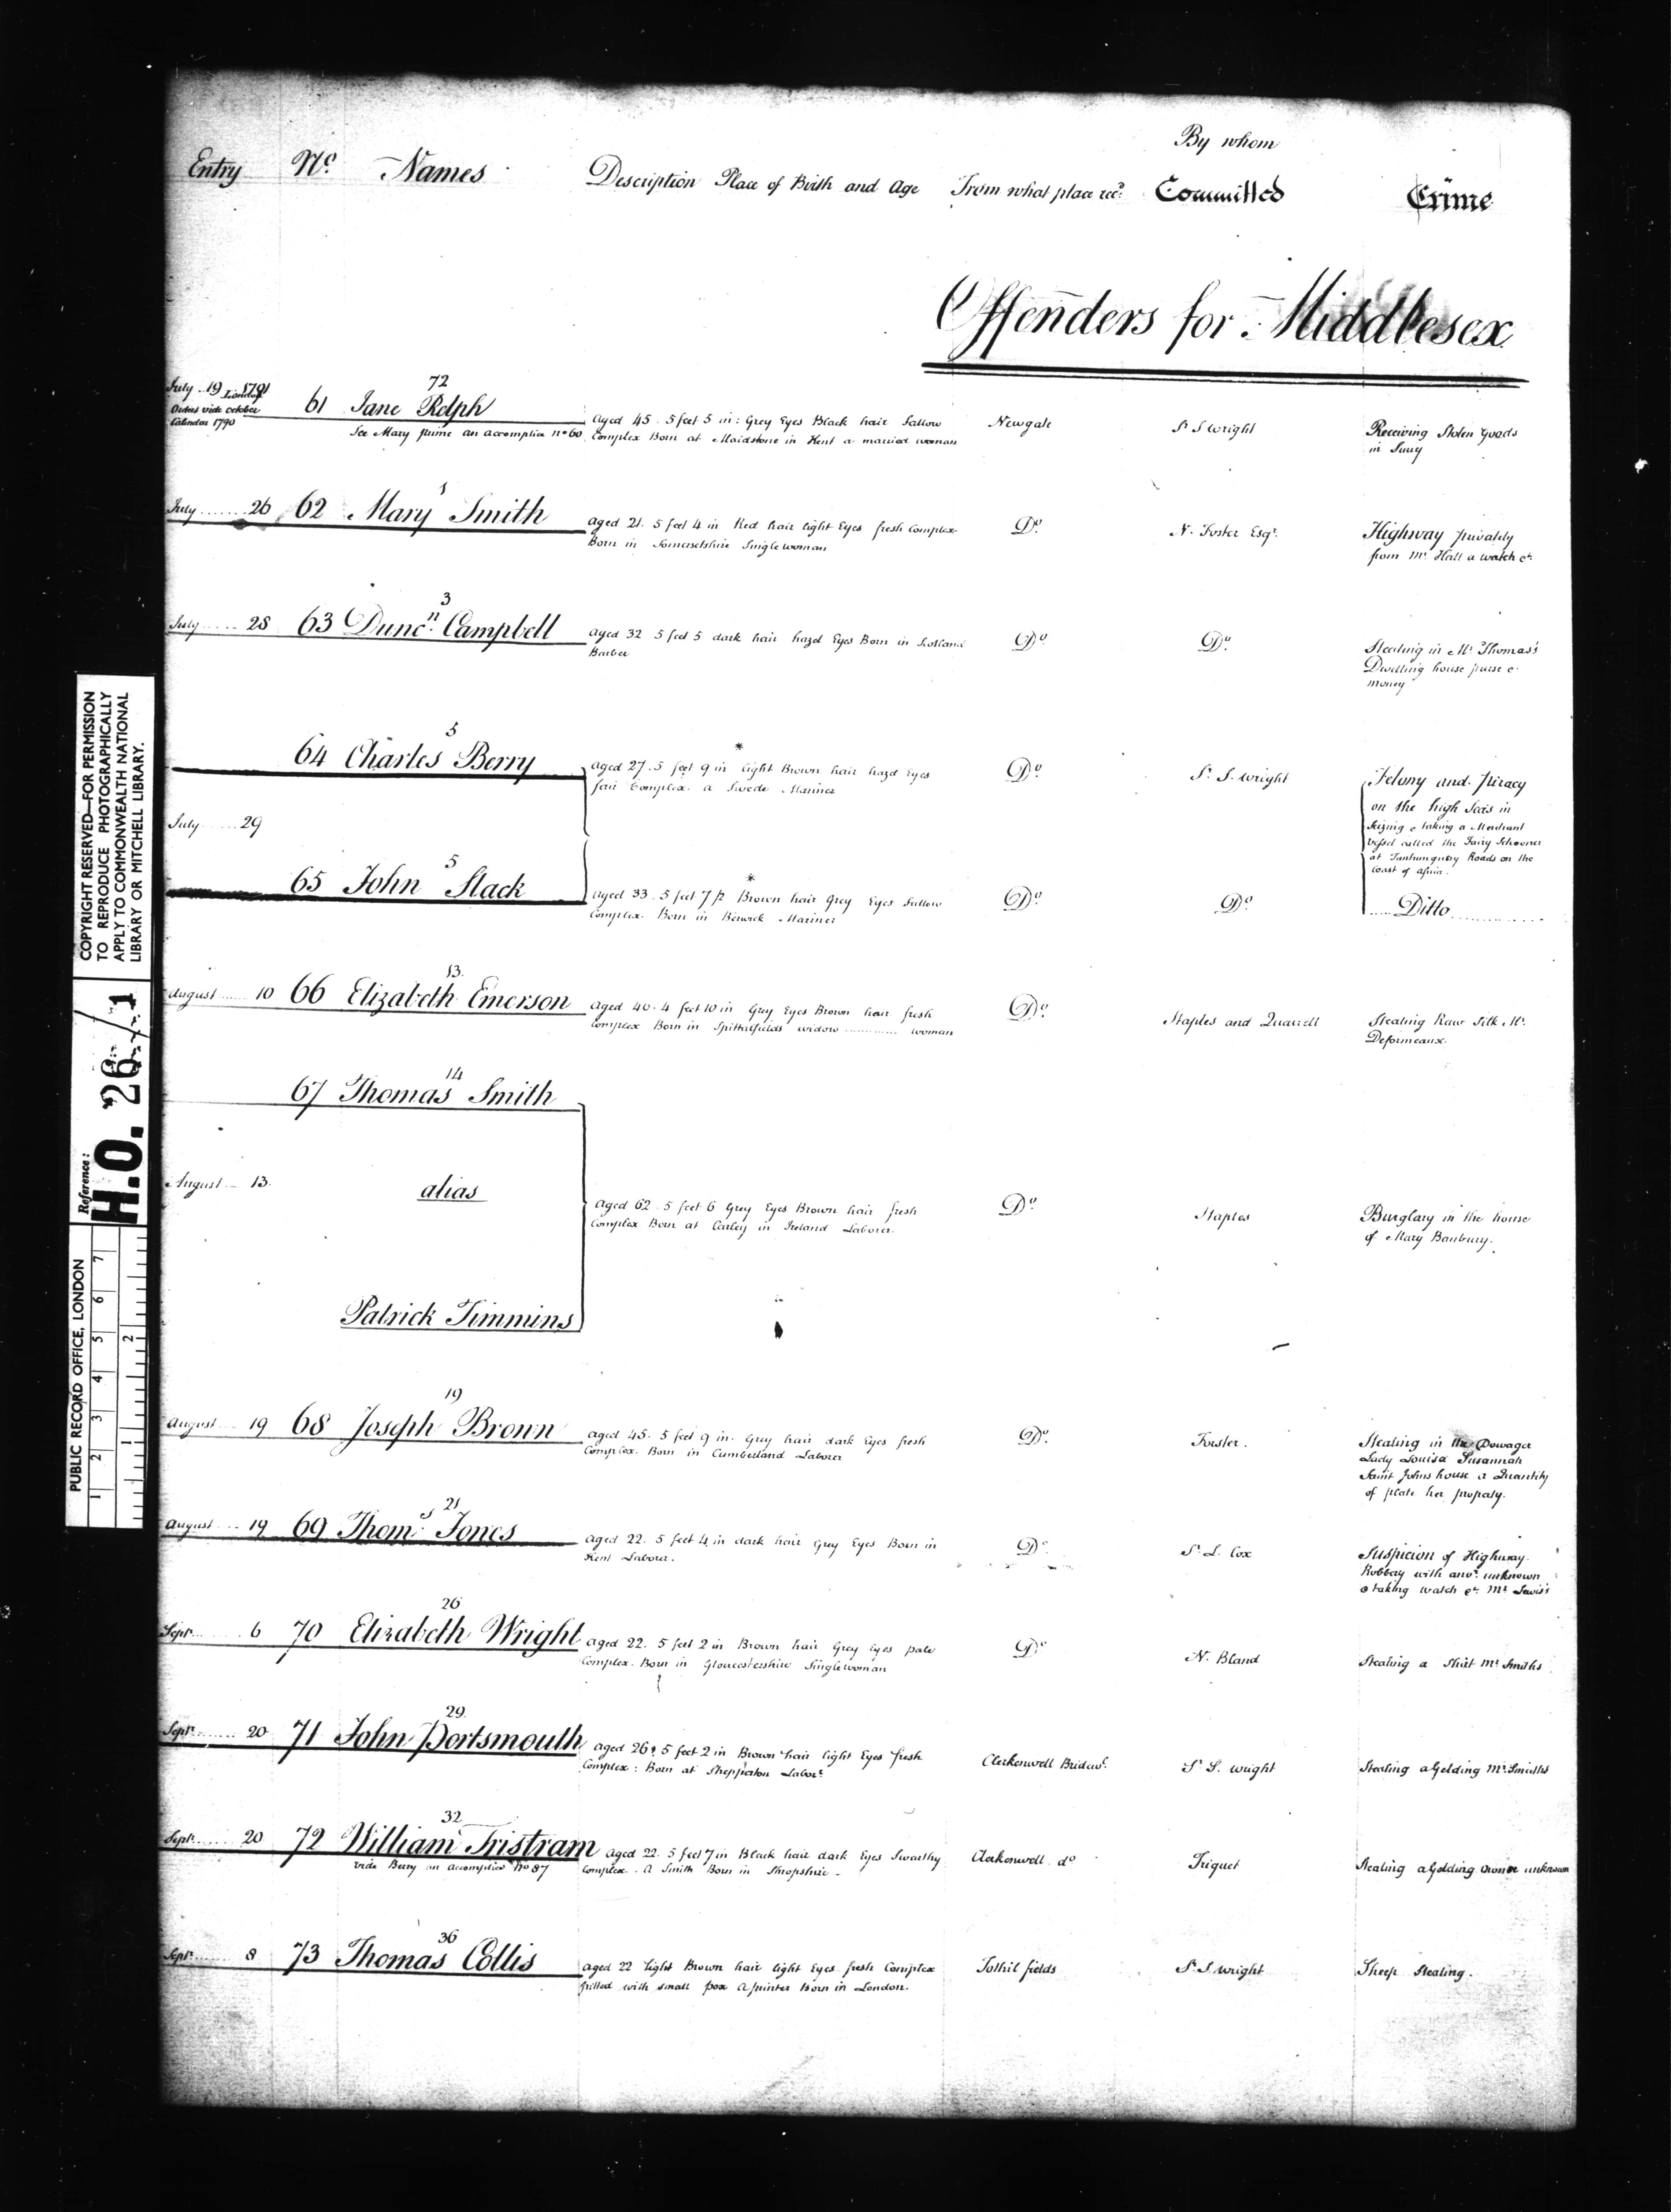 By whom
Entry No. Names Description Place of Birth and Age From what place recd. Committed Crime
Offenders for Middlesex
July 19 1791 London
Orders vide october
Calendar 1790
72
61 Jane Relph
See Mary Prime an accomplice no 60
aged 45. 5 feet 5 in: Grey Eyes Black hair Sallow
Complex Born at Maidstone in Kent a married woman
Newgate
Sr S Wright
Receiving Stolen Goods
in Surry
1
July 26 62 Mary Smith
aged 21. 5 feet 4 in Red hair light Eyes fresh Complex
Born in Somersetshire Single woman
Do
N. Foster Esqr.
Highway privately
from Mr. Hall a watch &c
3
July 28 63 Duncn. Campbell
aged 32 5 feet 5 dark hair hazel Eyes Born in Scotland
Barber
Do
Do
Stealing in Mr Thomas's
Dwelling house purse &
money
5
64 Charles Berry
*
aged 27. 5 feet 9 in light Brown hair hazel Eyes
fair Complex. a Swede Mariner
Do
Sr. S. Wright
Felony and piracy
on the high Seas in
Seizing & taking a Merchant
vessel called the Fairy Schooner
at Roads on the
Coast of africa.
July 29
5
65 John Slack
*
aged 33. 5 feet 7½ Brown hair Grey Eyes Sallow
Complex. Born in Berwick Mariner
Do
Do
Ditto
13.
August 10 66 Elizabeth Emerson
aged 40. 4 feet 10 in Grey Eyes Brown hair fresh
Complex Born in Spittalfields widow woman
Do
Staples and Quarrell
Stealing Raw Silk Mr.
Deformeaux.
14
67 Thomas Smith
August 13. alias
Patrick Timmins
aged 62. 5 feet 6 Grey Eyes Brown hair fresh
Complex Born at Carley in Ireland Laborer.
Do
Staples
Burglary in the house
of Mary Banbury.
19
August 19 68 Joseph Brown
aged 45. 5 feet 9 in. Grey hair dark Eyes fresh
Complex. Born in Cumberland Laborer
Do
Forster.
Stealing in the Dowager
Lady Louisa Susannah
Saint Johns house a Quantity
of plate her property.
21
August 19 69 Thoms. Jones
aged 22. 5 feet 4 in dark hair Grey Eyes Born in
Kent Laborer.
Do
Sr. L. Cox
Suspicion of Highway
Robbery with anor. unknown
& taking watch &c. Mr Lewis's
26
Sept. 6 70 Elizabeth Wright
aged 22. 5 feet 2 in Brown hair Grey Eyes pale
Complex. Born in Gloucestershire Singlewoman
Do
N. Bland
Stealing a Shirt Mr Smiths
29
Sept. 20 71 John Portsmouth
aged 26. 5 feet 2 in Brown hair light Eyes fresh
Complex: Born at Shepperton Labor.
Clerkenwell Bridewl.
Sr S. Wright
Stealing a Gelding Mr. Smiths
32
Sept. 20 72 William Tristram
vide Berry an accomplice No 87
aged 22. 5 feet 7 in Black hair dark Eyes Swarthy
Complex. A Smith Born in Shopshire
Clerkenwell do
Triquet
Stealing a Gelding Owner unknown
36
Sept. 8 73 Thomas Collis
aged 22 light Brown hair light Eyes fresh Complex
pitted with small pox A printer Born in London.
Tothil fields
Sr. S Wright
Sheep Stealing.
COPYRIGHT RESERVED—FOR PERMISSION
TO REPRODUCE PHOTOGRAPHICALLY
APPLY TO COMMONWEALTH NATIONAL
LIBRARY OR MITCHELL LIBRARY.
Reference:
H.O. 26/1
PUBLIC RECORD OFFICE, LONDON
1 2 3 4 5 6 7
1 2